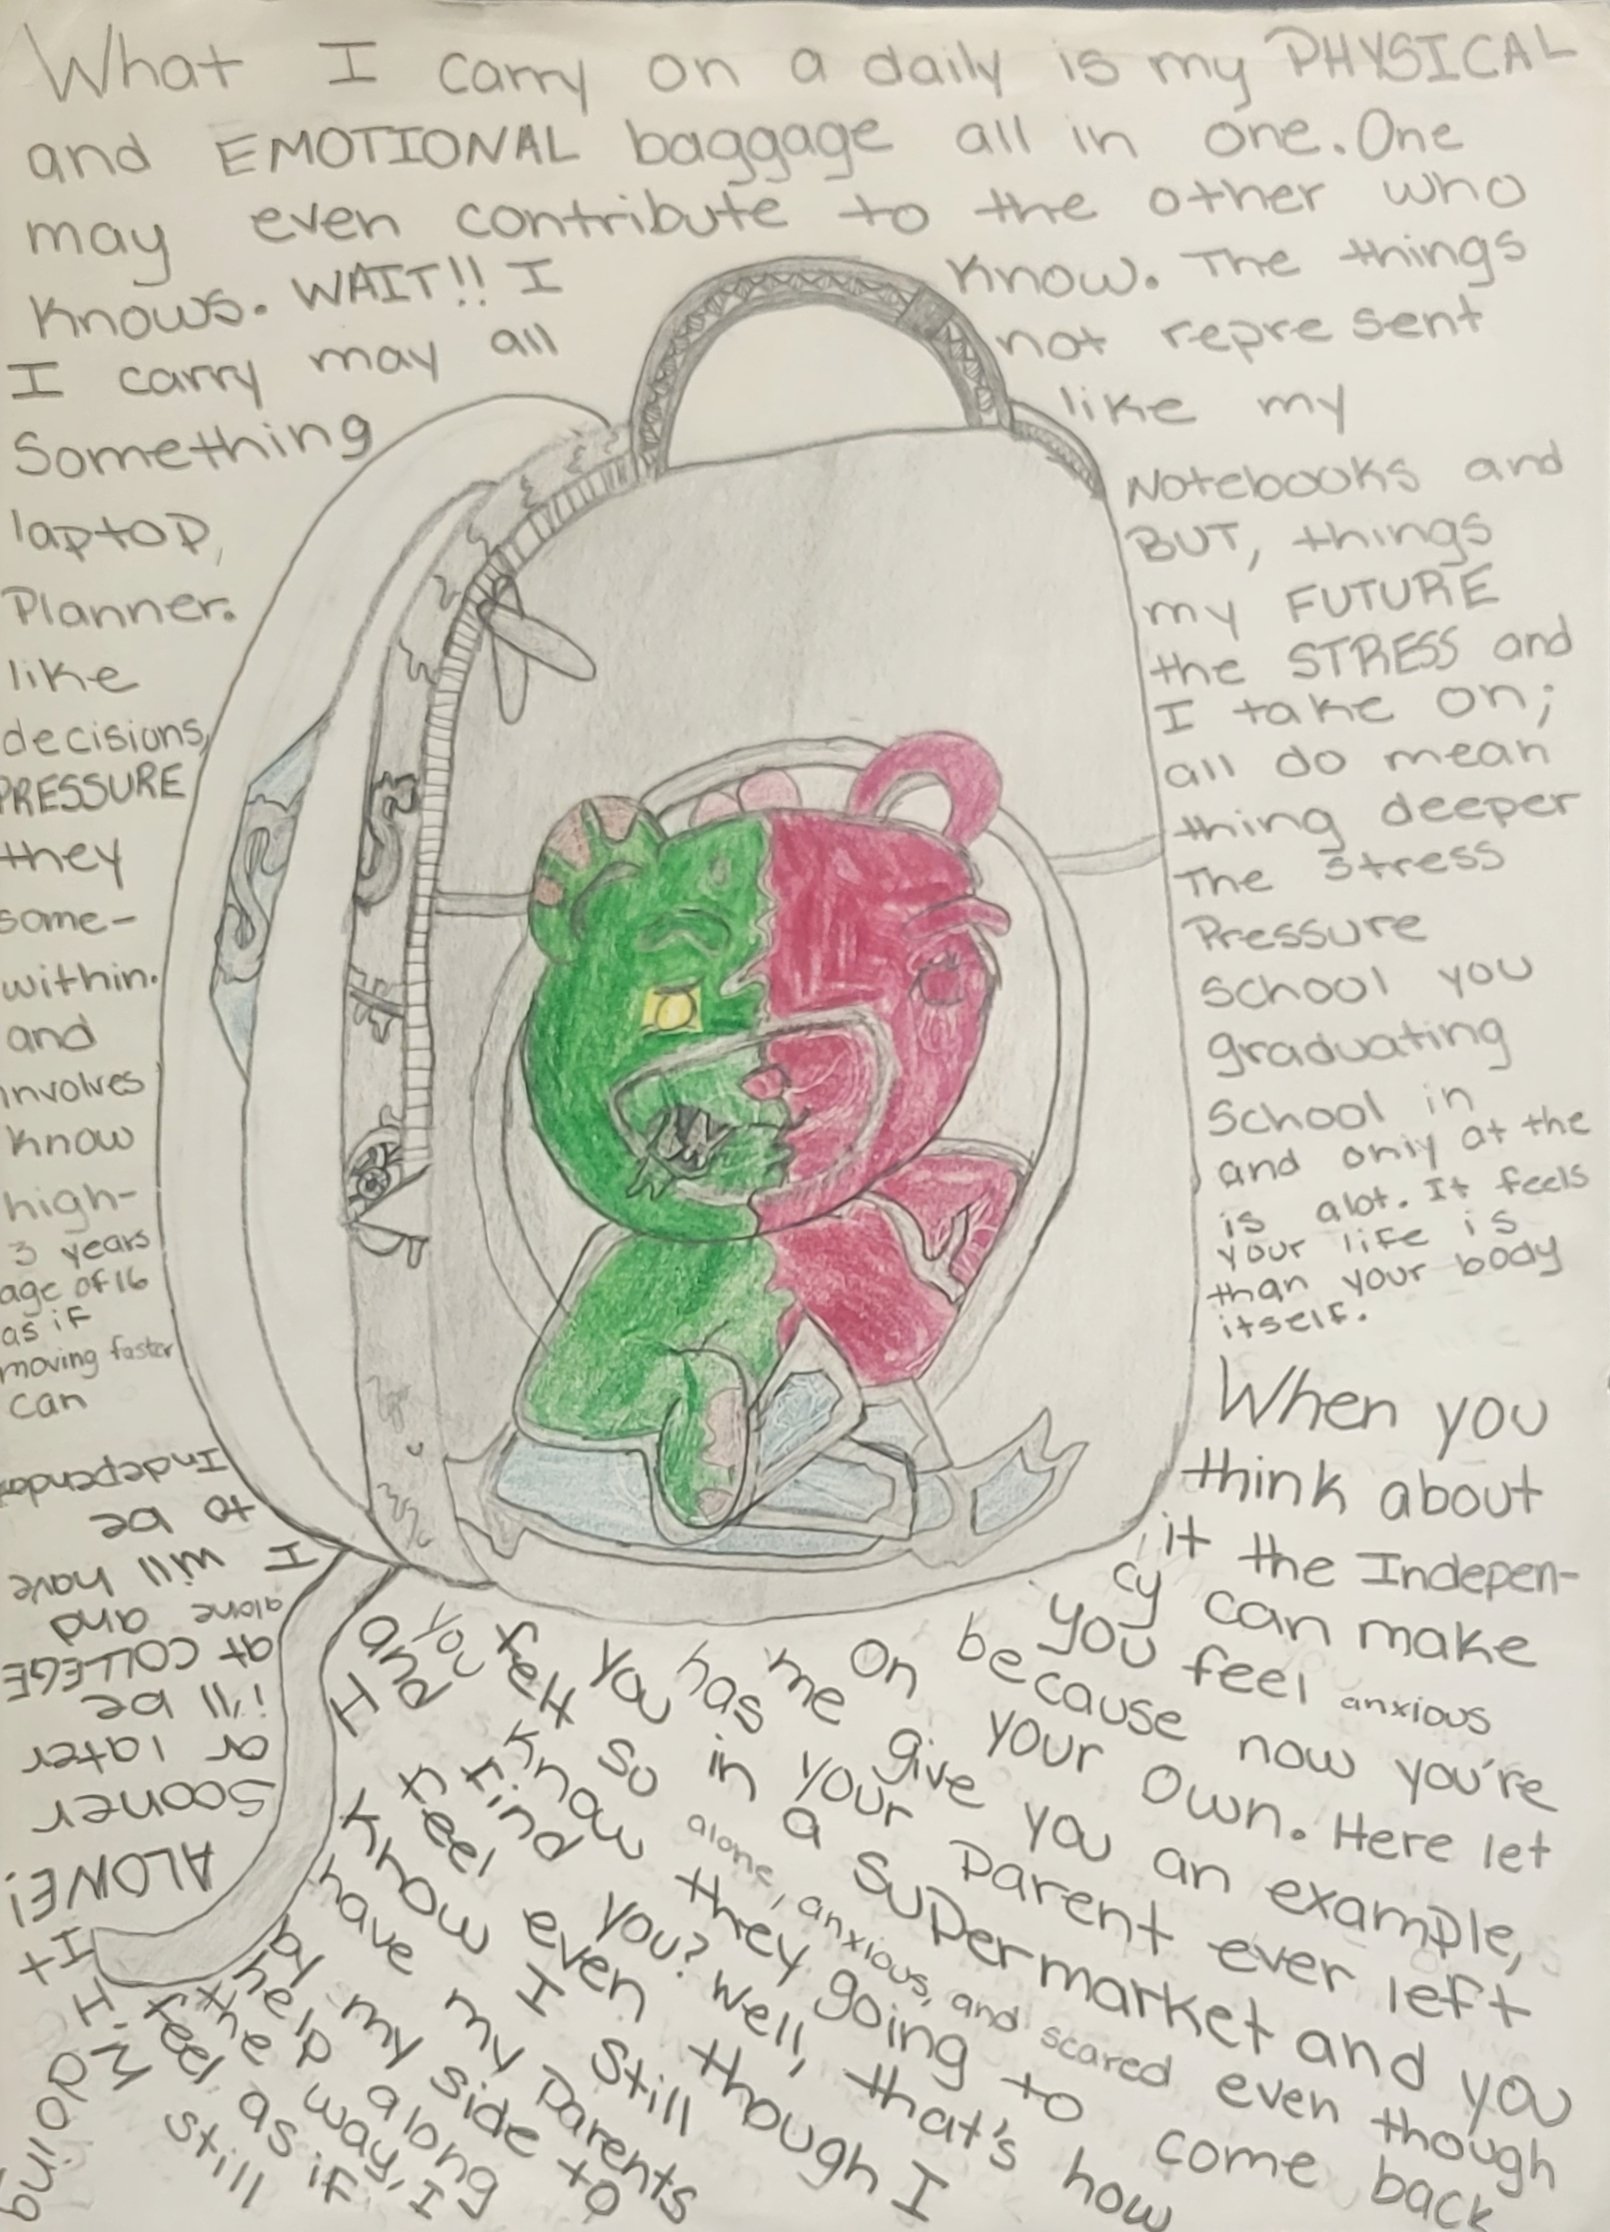 What I carry on a daily is my PHYSICAL
and EMOTIONAL baggage all in one. One
may even contribute to the other who
knows. WAIT!! I know. The things
I carry may all not represent
something like my
laptop, Notebooks and
Planner. BUT, things
like my FUTURE
decisions, the STRESS and
PRESSURE I take on;
they all do mean
some- thing deeper
within. The stress
and Pressure
involves school you
know graduating
high- School in
3 years and only at the
age of 16 is alot. It feels
as if your life is
moving faster than your body
can itself.
When you
think about
it the Indepen-
cy can make
you feel anxious
because now you're
on your own. Here let
me give you an example,
has your parent ever left
you in a supermarket and you
felt so alone, anxious, and scared even though
you know they going to come back
and find you? Well, that's how
I feel even though I
know I still
have my parents
by my side to
help along
the way, I
feel as if
I'm still
doing
It
ALONE!
Sooner
or later
i'll be
at COLLEGE
alone and
I will have
to be